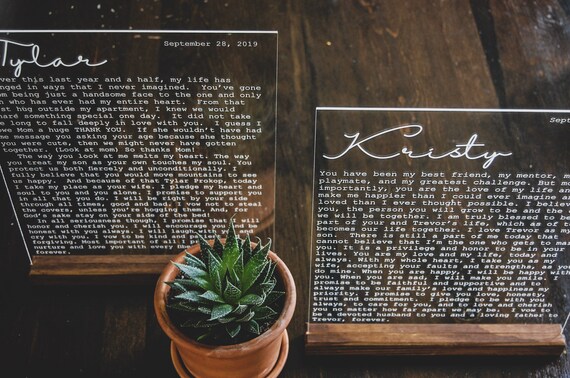 Tylar
September 28, 2019
ver this last year and a half, my life has
nged in ways that I never imagined. You've gone
om being just a handsome face to the one and only
n who has ever had my entire heart. From that
st hug outside my apartment, I knew we would
hare something special one day. It did not take
e long to fall deeply in love with you. I guess I
owe Mom a huge THANK YOU. If she wouldn't have had
me message you and asking your age because she thought
you were cute, then we might never have gotten
together. (Look at mom! So thanks Mom!)
The way you look at me melts my heart. The way
you treat my son as your own touches my soul. You
protect us both fiercely and unconditionally. I
truly believe that you would move mountains to see
us happy. And because of that Tylar Probst, today
I take my place as your wife. I pledge my heart and
and love to you alone. I promise to support you
in all that you do. I will be right by your side
through all times, good and bad. I vow not to steal
the covers, unless you're hogging them. And, for
God's sake stay on your side of the bed!
In all seriousness though, I promise that I will
honor and cherish you. I will encourage you and be
honest with you always. I will laugh with
cry with
forgiving. Most important of all I p
nurture and love you with
forever.
Sept
Kristy
You have been my best friend, my mentor, m
playmate, and my greatest challenge. But mo
importantly, you are the love of my life an
make me happier than I could ever imagine a
loved than I ever thought possible. I believe
you, the person you will grow to be and the
we will be together. I am truly blessed to be
part of your and Trevor's life, which as of t
becomes our life together. I love Trevor as my
son. There is still a part of me today that
cannot believe that I'm the one who gets to mar
you. It is a privilege and honor to be in your
lives. You are my love and my life, today and
always. With my whole heart, I take you as my
wife, accepting your faults and strengths, as yo
do mine. When you are happy, I will be happy with
you. When you are sad, I will make you smile. I
promise to be faithful and supportive and to
always make our family's love and happiness my
priority. I promise to give you love, honesty,
trust and commitment. I pledge to be with you
always, to care for you, and to love and cherish
you no matter how far apart we may be. I vow to
be a devoted husband to you and a loving father to
Trevor, forever.